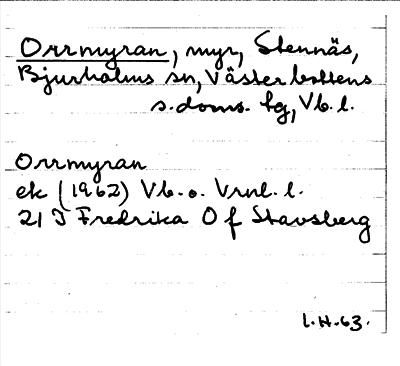 Orrmyran, myr, Stennäs,
Bjurholms sn, Västerbottens
s.doms. hg, Vb.l.
Orrmyran
ek (1962) Vb.o. Vrnl. l.
21 J Fredrika O f Stavsberg
l.H.63.